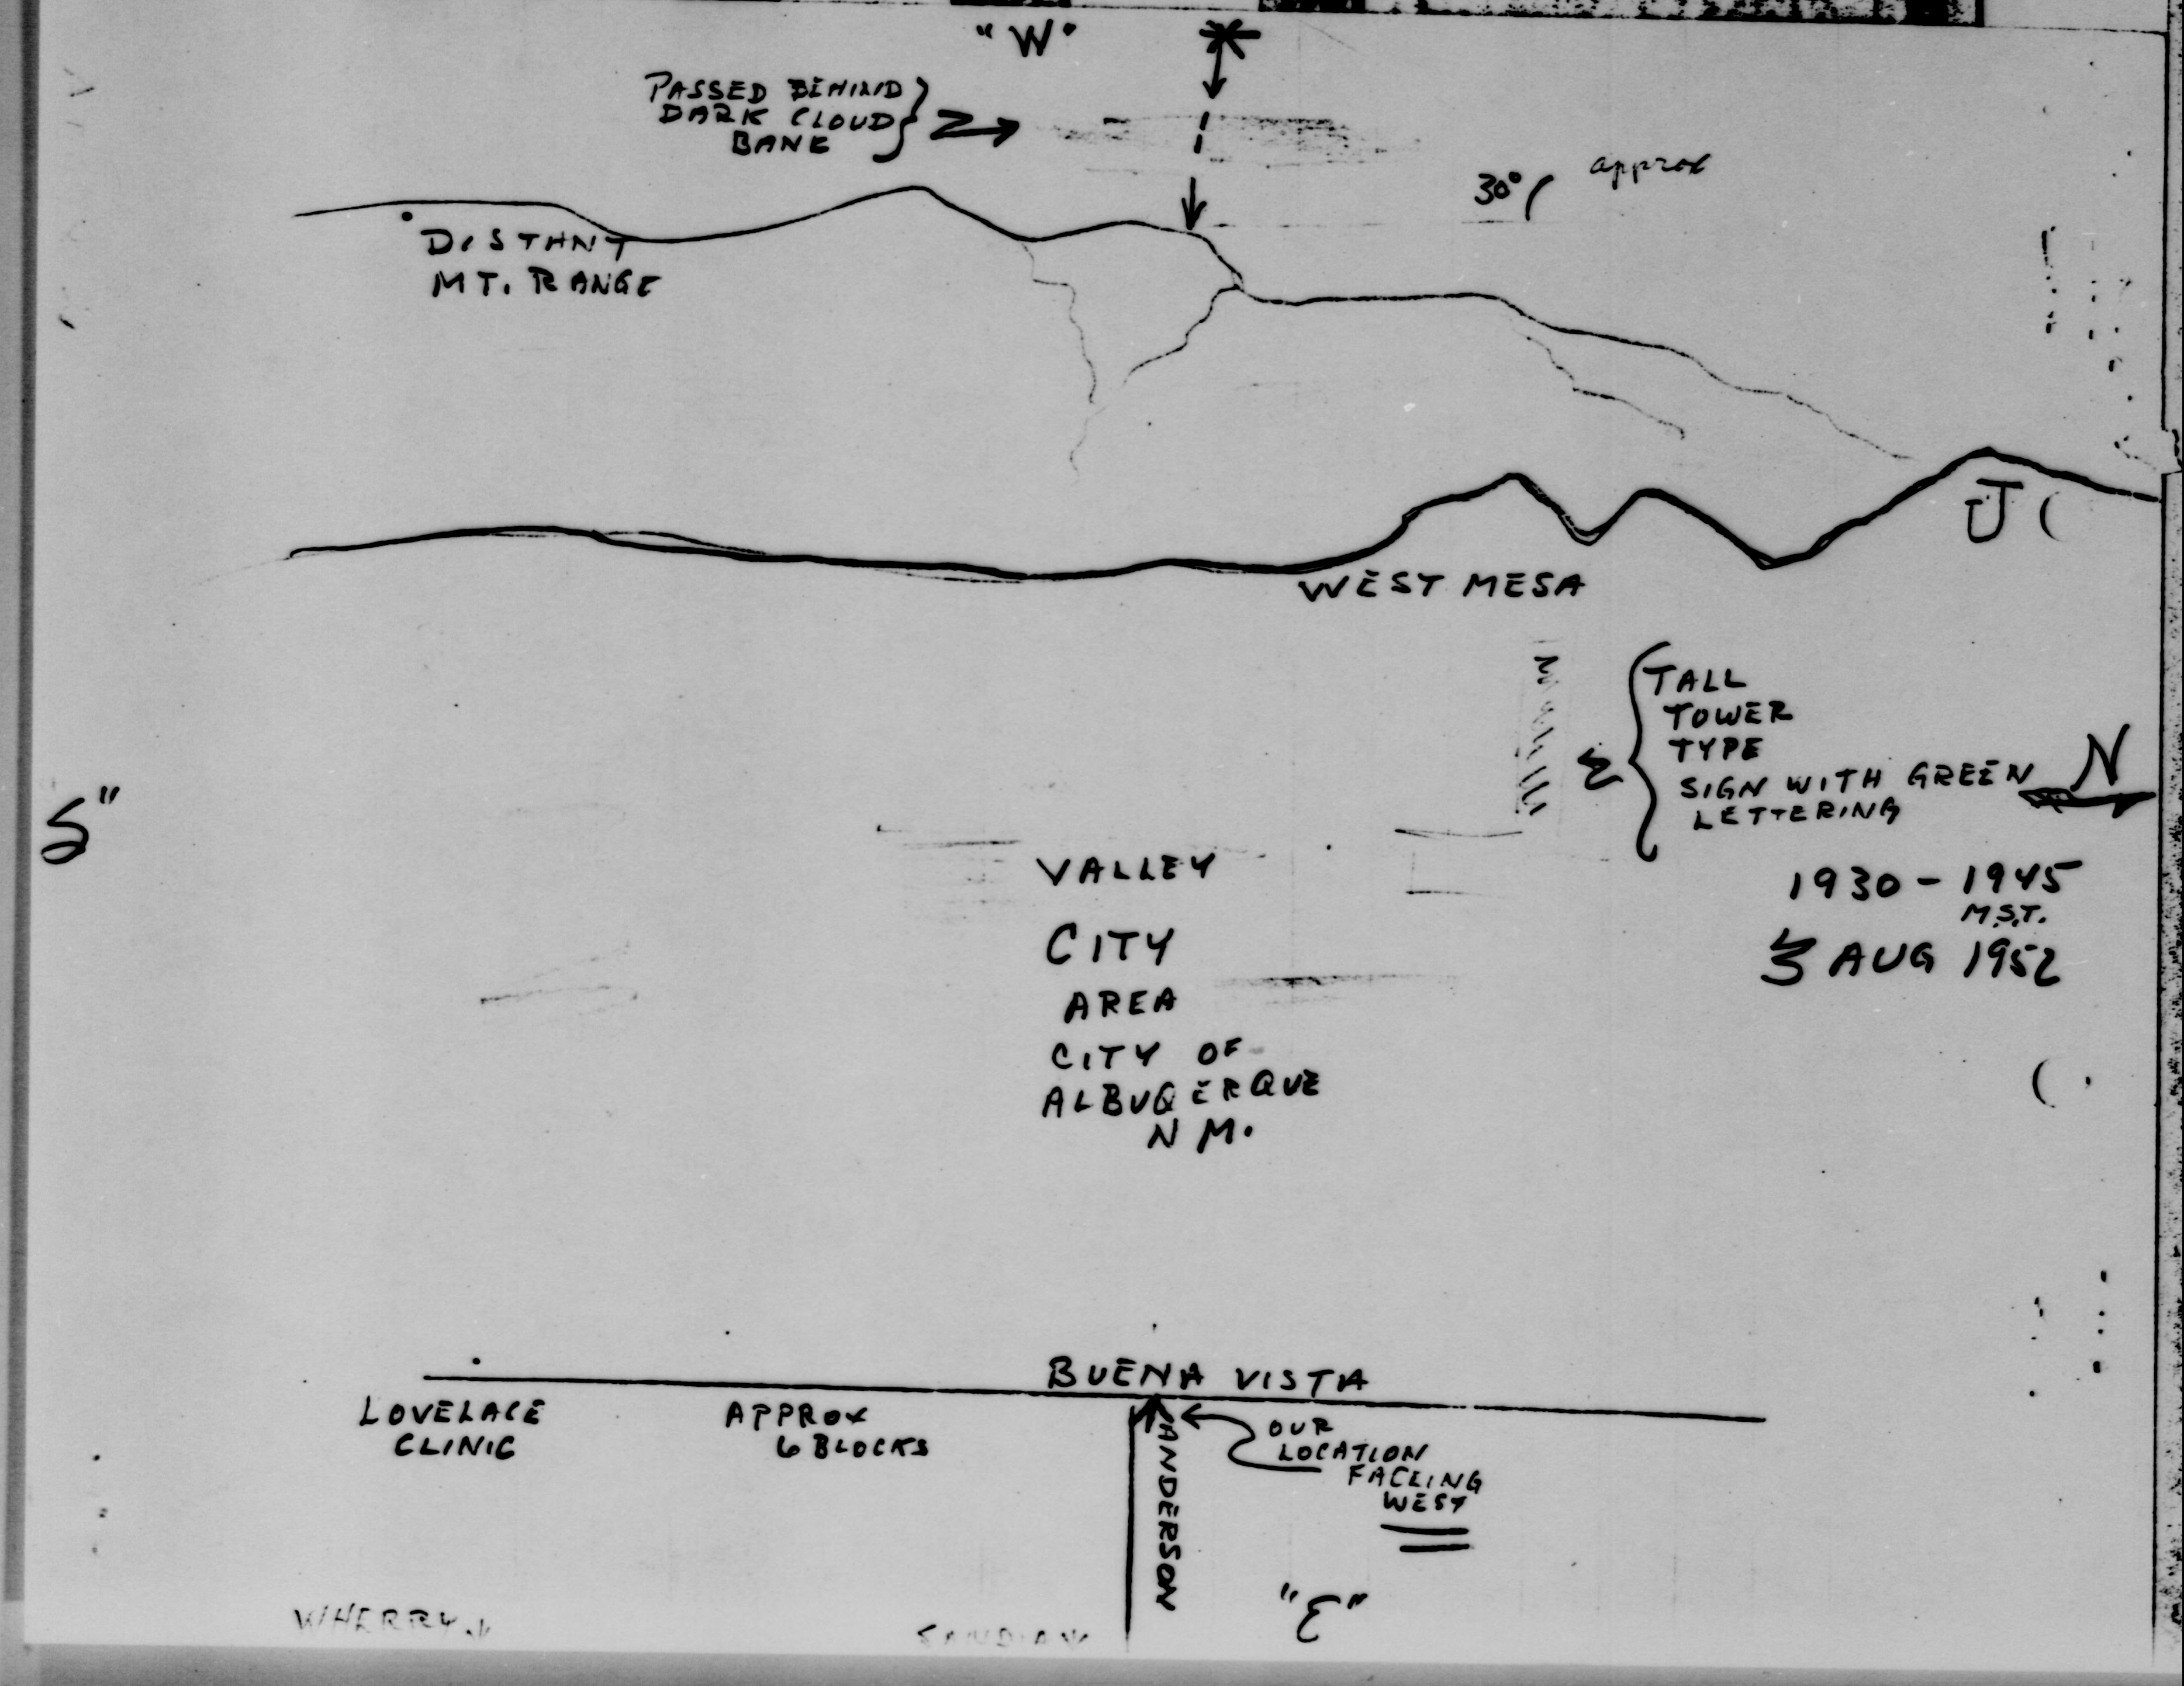 "W"
PASSED BEHIND
DARK CLOUD
BANE
30° approx
DISTANT
MT. RANGE
WEST MESA
TALL
TOWER
TYPE
SIGN WITH GREEN
LETTERING
N
S"
1930 - 1945
M.S.T.
AUG 1952
VALLEY
CITY
AREA
CITY OF
ALBUQERQUE
N M.
BUENA VISTA
LOVELACE
CLINIC
APPROX
6 BLOCKS
ANDERSON
OUR
LOCATION
FACEING
WEST
"E"
WHERRY
SANDIA